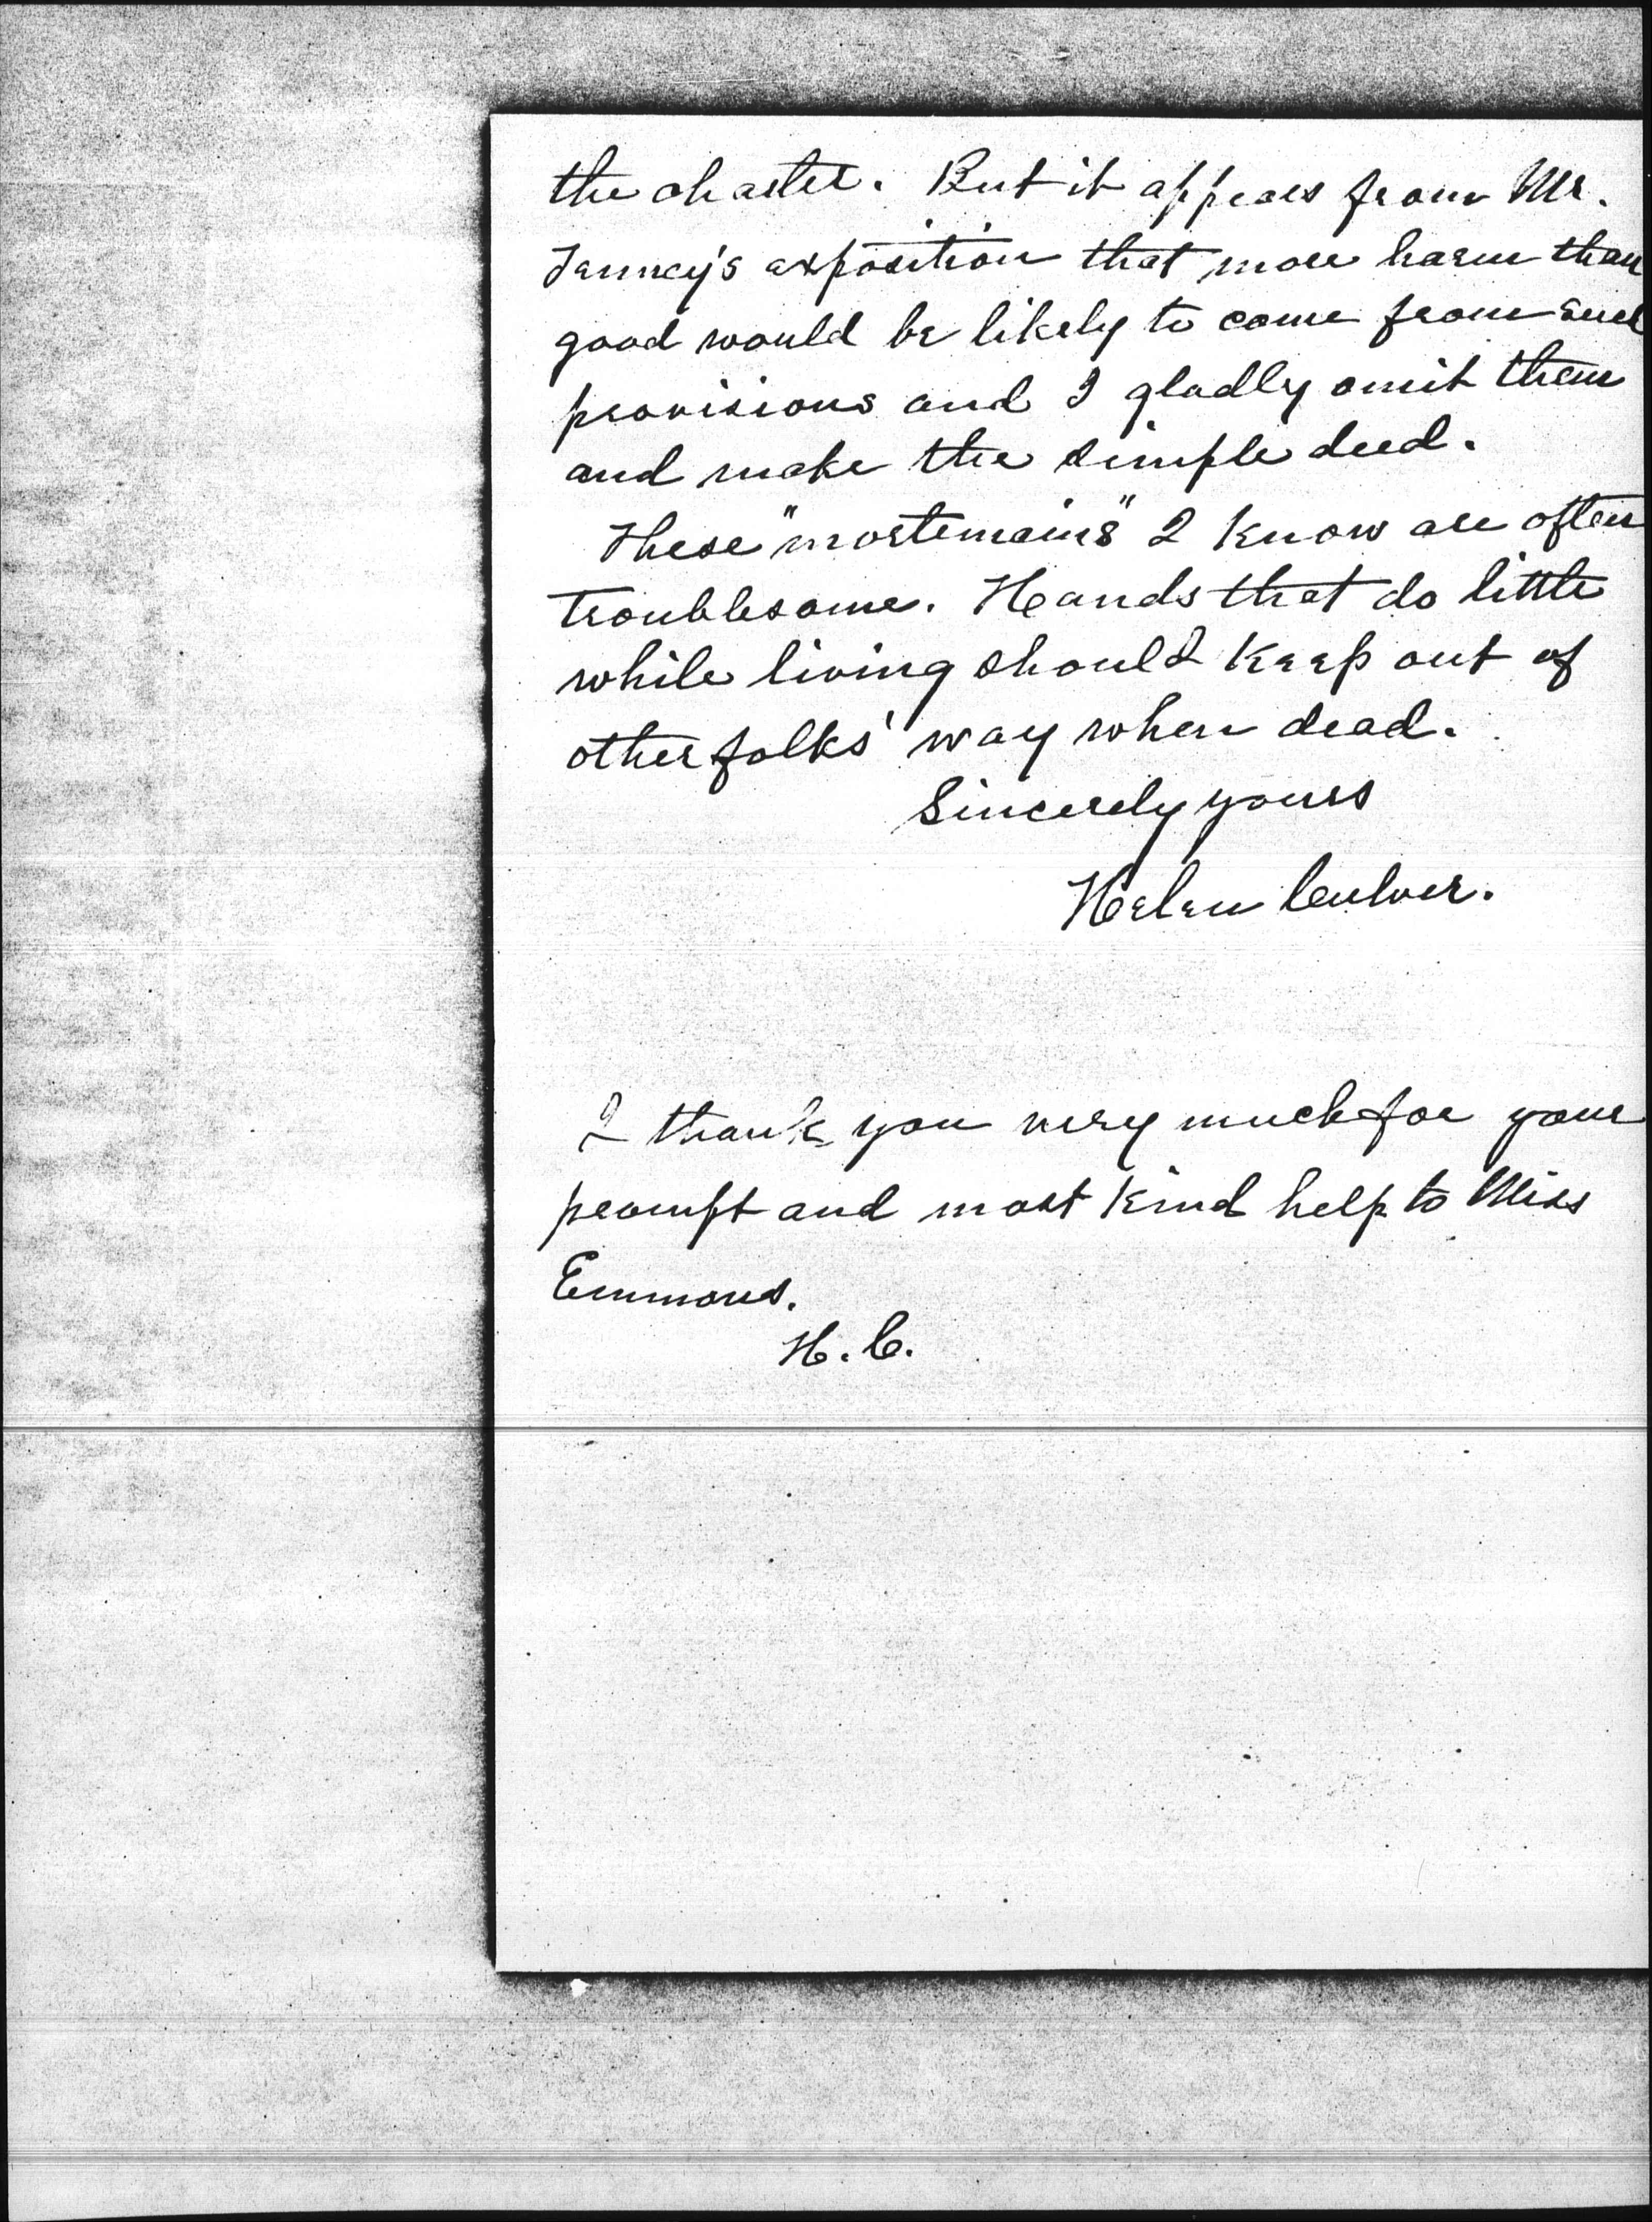 the charter. But it appears from Mr.
Tenney's exposition that more harm than
good would be likely to come from such
provisions and I gladly omit them
and make the simple deed.
These "mortemains" I know are often
troublesome. Hands that do little
while living should keep out of
other folks' way when dead.
Sincerely yours
Helen Culver.
I thank you very much for your
prompt and most kind help to Miss
Emmons.
H. C.